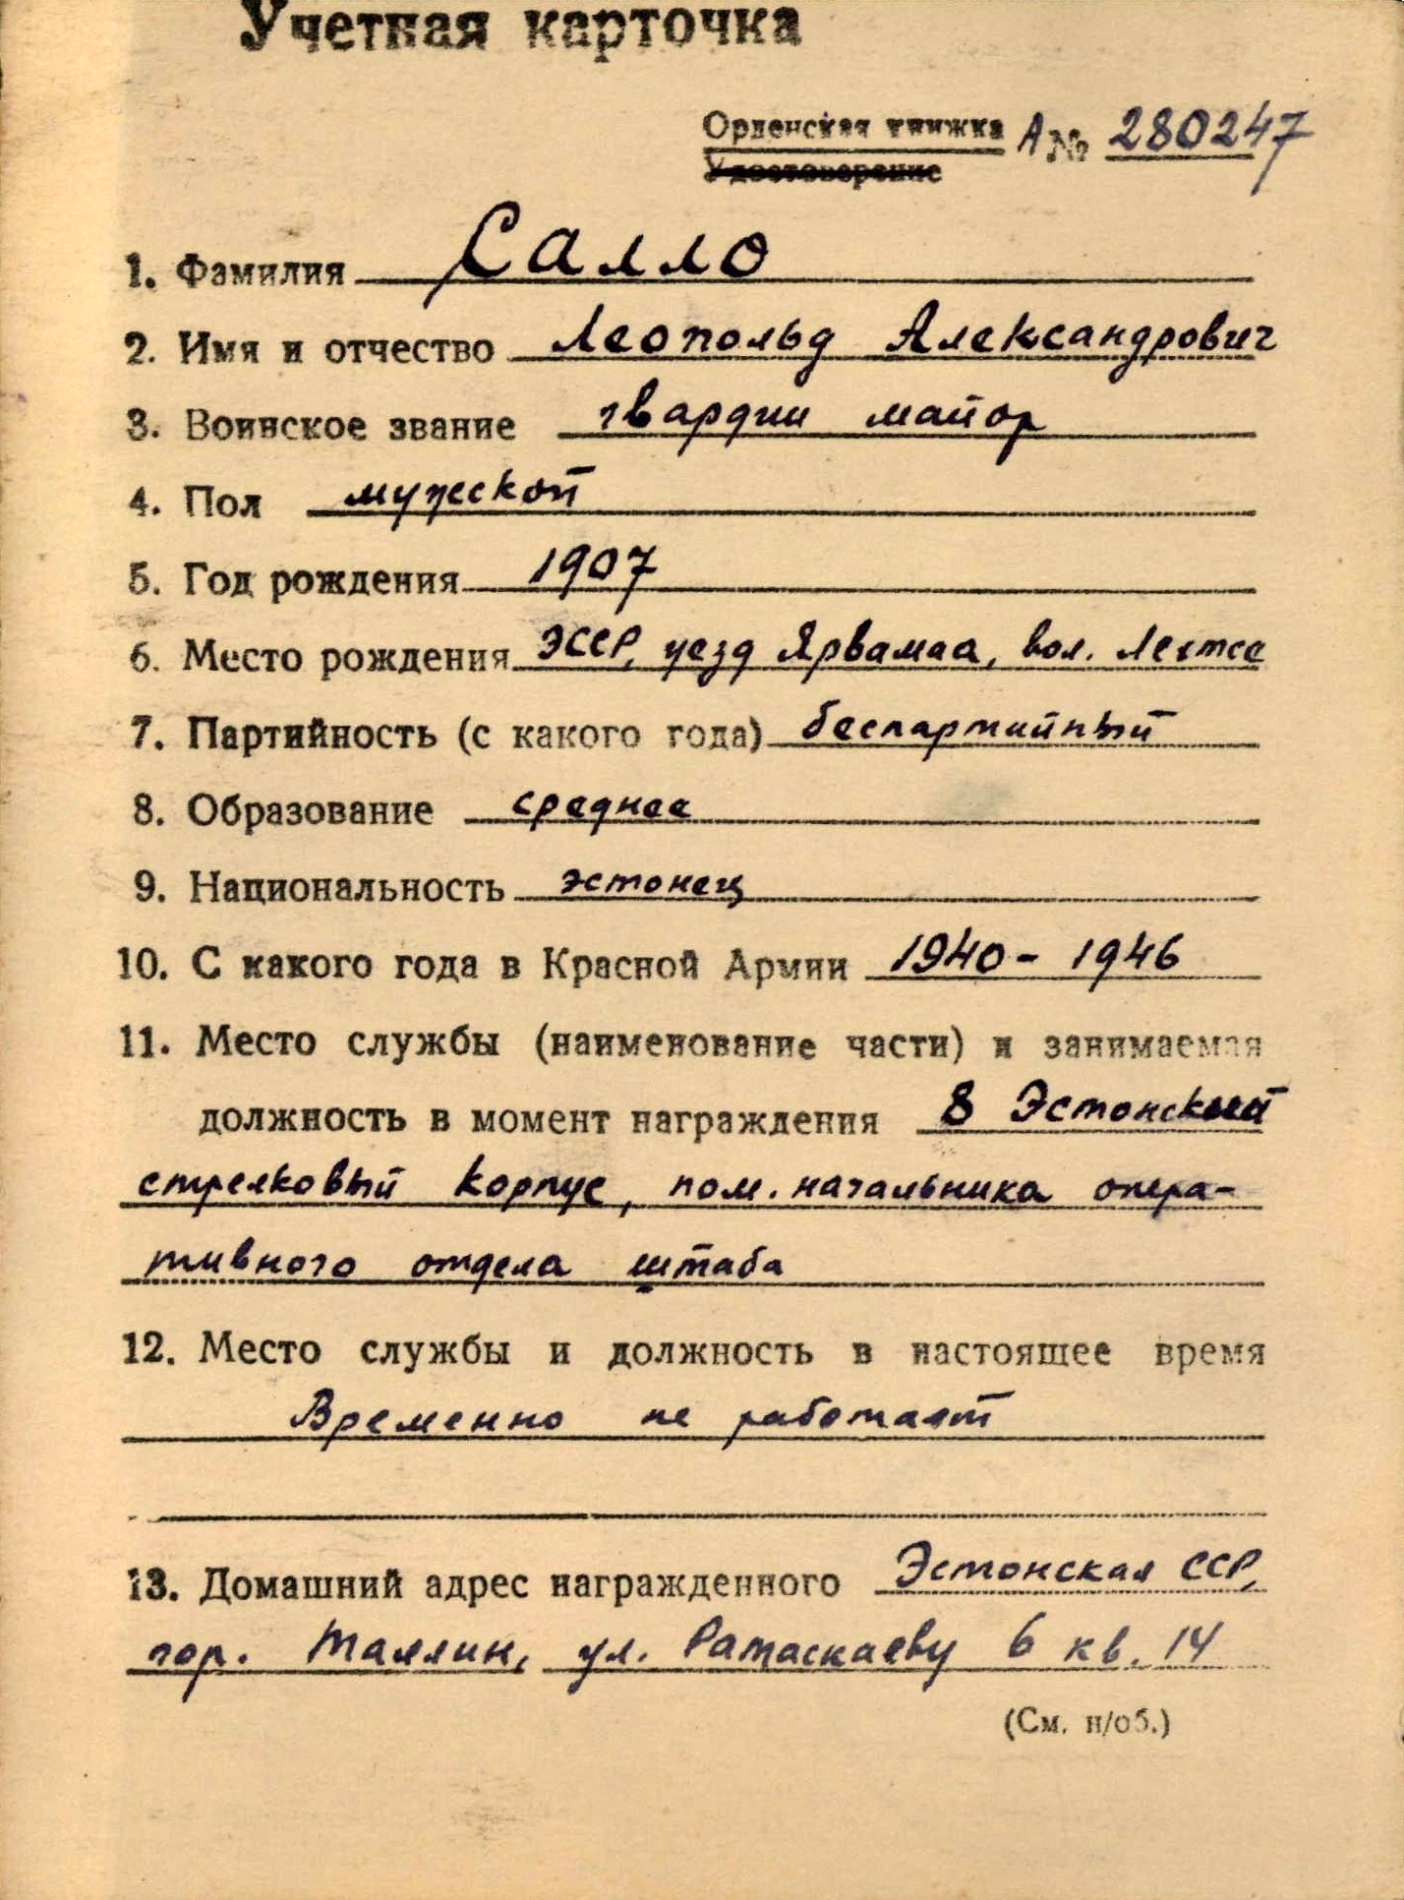 Учетная карточка
Орденская книжка А № 280247
Удостоверение
1. Фамилия Салло
2. Имя и отчество Леопольд Александрович
3. Воинское звание гвардии майор
4. Пол мужской
5. Год рождения 1907
6. Место рождения ЭССР, уезд Ярвамаа, вол. Лехтсе
7. Партийность (с какого года) беспартийный
8. Образование среднее
9. Национальность эстонец
10. С какого года в Красной Армии 1940 - 1946
11. Место службы (наименование части) и занимаемая
должность в момент награждения 8 Эстонский
стрелковый корпус, пом. начальника опера-
тивного отдела штаба
12. Место службы и должность в настоящее время
Временно не работает
13. Домашний адрес награжденного Эстонская ССР,
гор. Таллин, ул. Ратаскаеву 6 кв. 14
(См. н/об.)